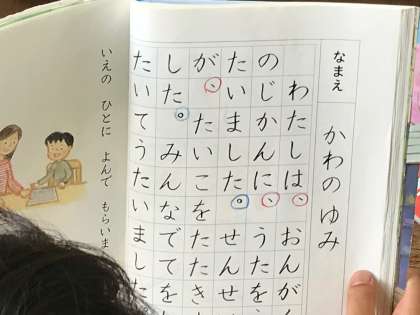 なまえ かわの ゆみ
わたしは、おんが
のじかんに、うたを
たいました。せんせ
が、たいこをたたき
した。みんなでてを
たいてうたいました
いえの ひとに よんで もらいま